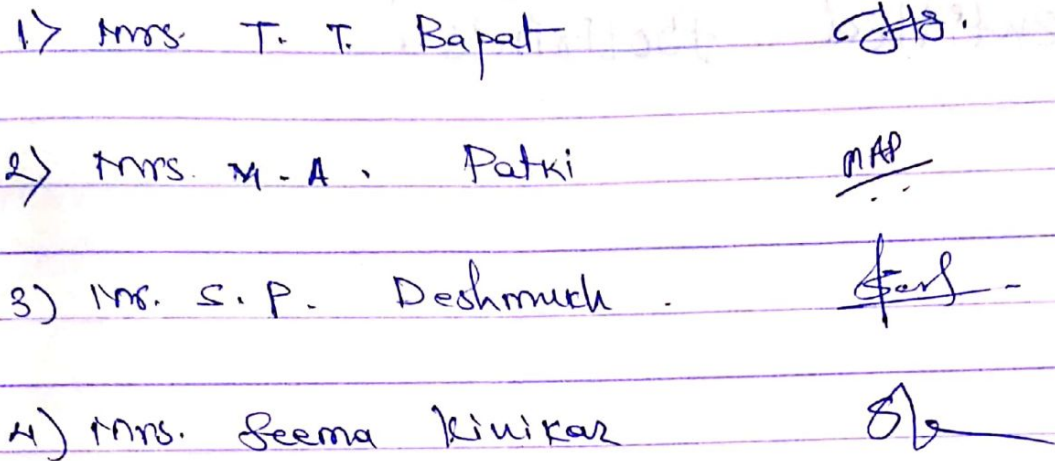 1) Mrs. T. T. Bapat
2) Mrs. M. A. Patki MAP
3) Mr. S. P. Deshmukh.
4) Mrs. Seema Kinikar